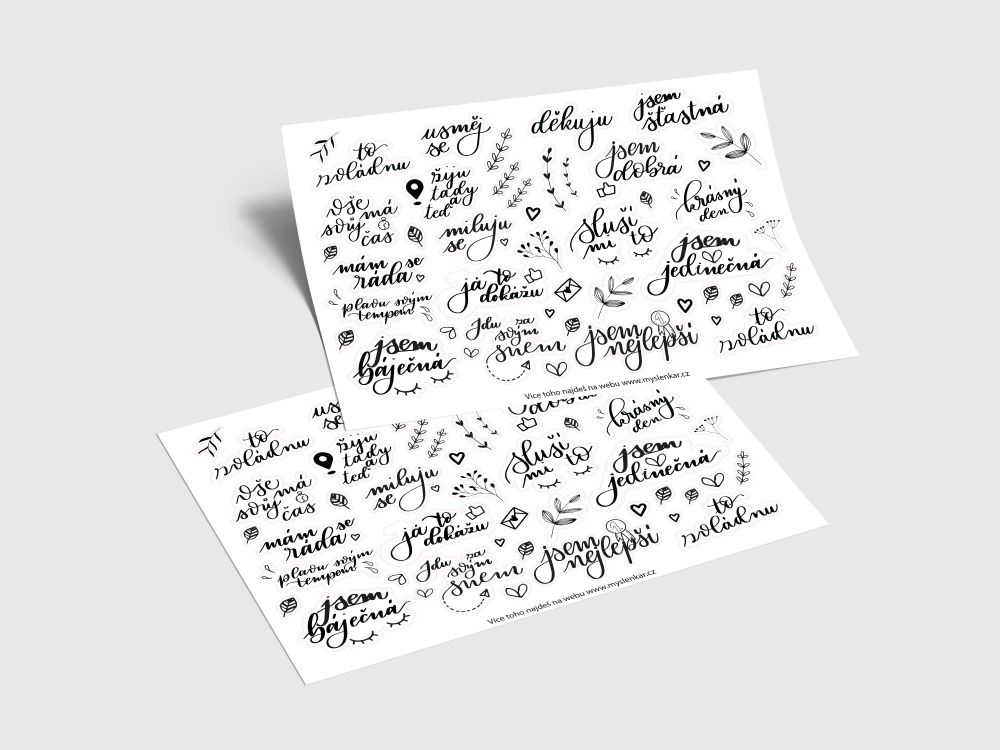 usměj
se
děkuju
jsem
šťastná
to
zvládnu
žiju
tady
a
teď
jsem
dobrá
vše
má
svůj
čas
miluju
se
sluší
mi to
krásný
den
mám se
ráda
já to
dokážu
jsem
jedinečná
plavu svým
tempem
Jdu za
svým
snem
jsem
nejlepší
to
zvládnu
jsem
báječná
Více toho najdeš na webu www.myslenkar.cz
usměj
se
to
zvládnu
žiju
tady
a
teď
dobrá
krásný
den
vše
má
svůj
čas
miluju
se
sluší
mi to
jsem
jedinečná
mám se
ráda
já to
dokážu
plavu svým
tempem
Jdu za
svým
snem
jsem
nejlepší
to
zvládnu
jsem
báječná
Více toho najdeš na webu www.myslenkar.cz